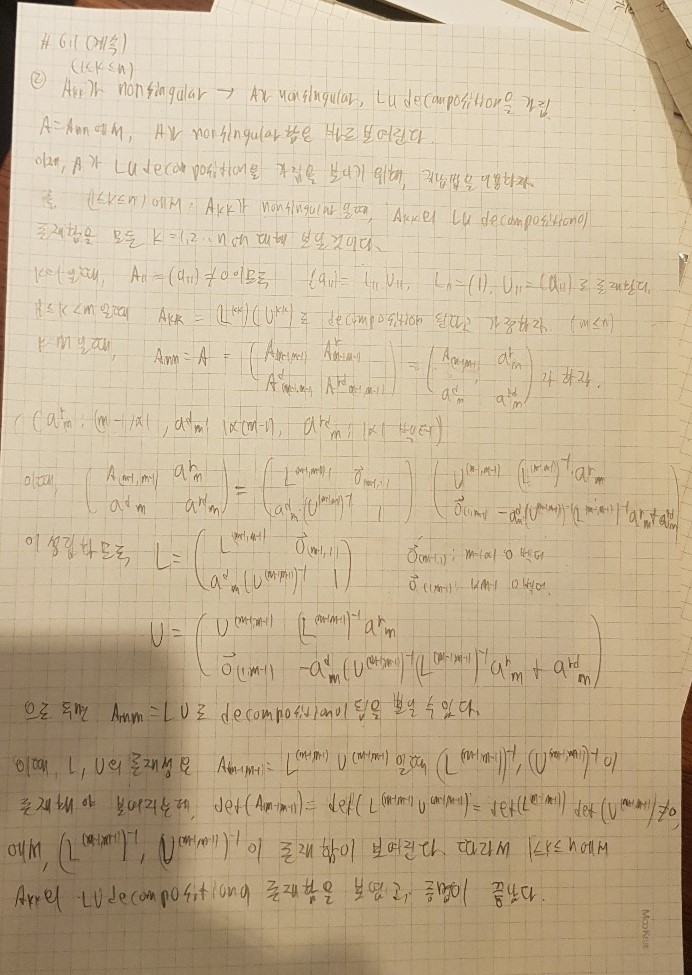 # 6.1 (계속)
(1≤k≤n)
② Akk가 nonsingular → A가 nonsingular, LU decomposition을 가짐.
A=Ann에서, A가 nonsingular함은 바로 보여진다.
이제, A가 LU decomposition을 가짐을 보이기 위해, 귀납법을 이용하자.
즉, (1≤k≤n)에서 Akk가 nonsingular일때, Akk의 LU decomposition이
존재함을 모든 k=1,2...n에 대해 보일 것이다.
k=1일때, A11=(a11)≠0이므로 (a11)=L11U11, L11=(1), U11=(a11)로 존재한다.
1≤k<m일때 Akk = (L^(k,k))(U^(k,k))로 decomposition 된다고 가정하자. (m≤n)
k=m일때, Amm = A = ( A(m-1,m-1) A^r_(m-1,m-1) / A^d_(m-1,m-1) A^rd_(m-1,m-1) ) = ( A(m-1,m-1) a^r_m / a^d_m a^rd_m ) 라 하자.
( a^r_m : (m-1)×1, a^d_m : 1×(m-1), a^rd_m : 1×1 벡터 )
이때, ( A(m-1,m-1) a^r_m / a^d_m a^rd_m ) = ( L^(m-1,m-1) 0⃗(m-1,1) / a^d_m (U^(m-1,m-1))^-1 1 ) ( U^(m-1,m-1) (L^(m-1,m-1))^-1 a^r_m / 0⃗(1,m-1) -a^d_m (U^(m-1,m-1))^-1 (L^(m-1,m-1))^-1 a^r_m + a^rd_m )
이 성립하므로 L = ( L^(m-1,m-1) 0⃗(m-1,1) / a^d_m (U^(m-1,m-1))^-1 1 ) 0⃗(m-1,1) : m-1×1 0 벡터
0⃗(1,m-1) : 1×m-1 0 벡터.
U = ( U^(m-1,m-1) (L^(m-1,m-1))^-1 a^r_m / 0⃗(1,m-1) -a^d_m (U^(m-1,m-1))^-1 (L^(m-1,m-1))^-1 a^r_m + a^rd_m )
으로 두면 Amm = LU로 decomposition이 됨을 볼 수 있다.
이때 L, U의 존재성은 A(m-1,m-1) = L^(m-1,m-1) U^(m-1,m-1) 일때 (L^(m-1,m-1))^-1, (U^(m-1,m-1))^-1이
존재해야 보여지는데, det(A(m-1,m-1)) = det(L^(m-1,m-1) U^(m-1,m-1)) = det(L^(m-1,m-1)) det(U^(m-1,m-1)) ≠ 0,
에서, (L^(m-1,m-1))^-1, (U^(m-1,m-1))^-1이 존재함이 보여진다. 따라서 1≤k≤n에서
Akk의 LU decomposition이 존재함을 보였고, 증명이 끝났다.
MooNus